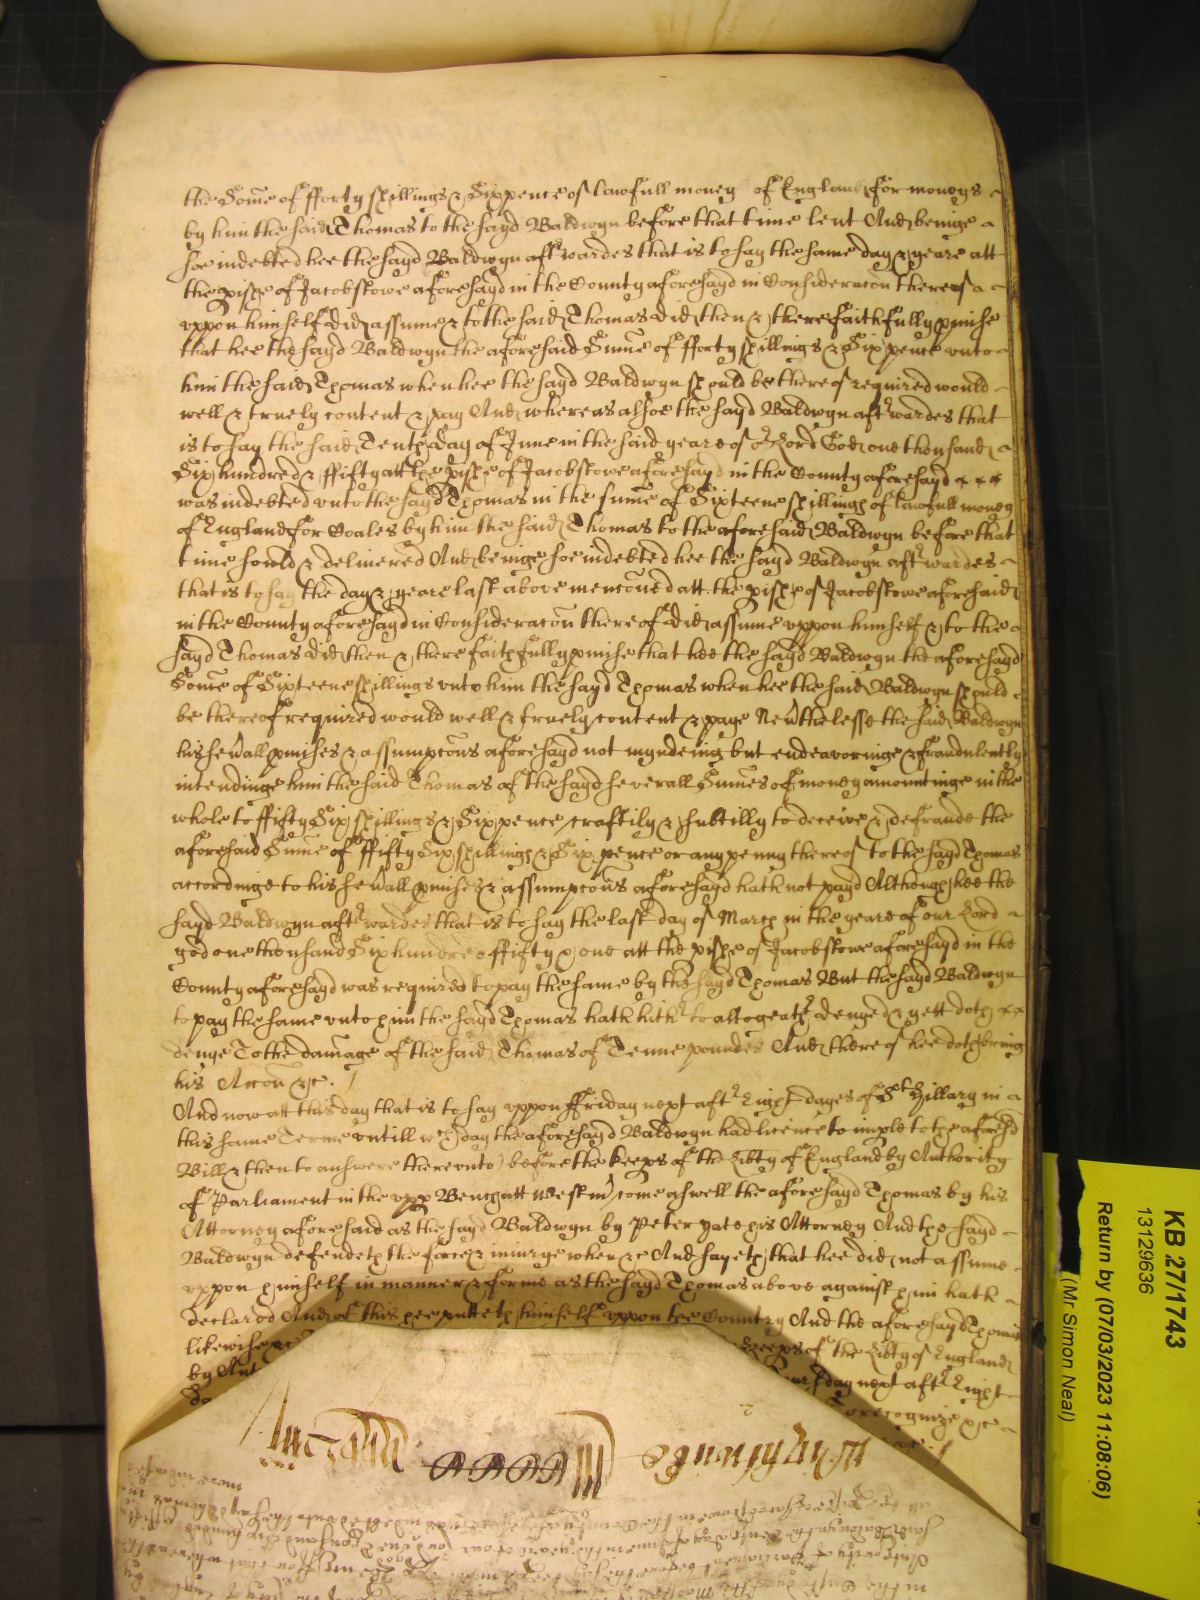 the Som̄e of fforty shillings & Sixpence of lawfull money of England for moneys
by him the said Thomas to the sayd Baldwyn before that time lent And beinge
soe indebted hee the sayd Baldwyn aftrwardes that is to say the same day & yeare att
the pish of Jacobstowe aforesayd in the County aforesayd in Consideracōn thereof
uppon himself did assume & to the said Thomas did then & there faithfully pmise
that hee the sayd Baldwyn the aforesaid Sum̄e of fforty shillings & Sixpence unto
him the said Thomas when hee the sayd Baldwyn should be thereof required would
well & truely content & pay And whereas alsoe the sayd Baldwyn aftrwardes that
is to say the said Tenth day of June in the said yeare of or Lord God one thousand
Six hundred & ffifty att the pish of Jacobstowe aforesayd in the County aforesayd
was indebted unto the sayd Thomas in the sum̄e of Sixteene shillings of lawfull money
of England for Coales by him the said Thomas to the aforesaid Baldwyn before that
time sould & delivered And beinge soe indebted hee the sayd Baldwyn aftrwardes
that is to say the day & yeare last above menc̄oned att the pish of Jacobstowe aforesaid
in the County aforesayd in Consideracōn thereof did assume uppon himself & to the
sayd Thomas did then & there faithfully pmise that hee the sayd Baldwyn the aforesayd
Som̄e of Sixteene shillings unto him the sayd Thomas when hee the said Baldwyn should
be thereof required would well & truely content & paye Nevtheless the said Baldwyn
his sevall pmises & assumpcōns aforesayd not myndeing but endeavoringe & fraudulently
intendinge him the said Thomas of the sayd severall Sum̄es of money amountinge in the
whole to ffifty Six shillings & Six pence craftily & subtilly to deceive & defraude the
aforesaid Sum̄e of ffifty Six shillings & Six pence or any penny thereof to the sayd Thomas
accordinge to his sevall pmises & assumpcōns aforesayd hath not payd Although hee the
sayd Baldwyn aftrwardes that is to say the last day of March in the yeare of our Lord
god one thousand Six hundred ffifty & one att the pish of Jacobstowe aforesayd in the
County aforesayd was required to pay the same by the sayd Thomas But the sayd Baldwyn
to pay the same unto him the sayd Thomas hath hithrto altogeathr denyed & yett doth
denye To the damage of the said Thomas of Tenne poundes And thereof hee doth bring
his Accōn &c.
And now att this day that is to say uppon ffriday next aftr Eight dayes of St Hillary in
this same Terme untill wch day the aforesayd Baldwyn had licence to imple to the aforesd
Bill & then to answere thereunto before the Keeps of the Libty of England by Authority
of Parliament in the uppr Bench att Westmr come aswell the aforesayd Thomas by his
Attorney aforesaid as the sayd Baldwyn by Peter Yate his Attorney And the sayd
Baldwyn defendeth the force & iniurye when &c And sayeth that hee did not assume
uppon himself in manner & forme as the sayd Thomas above against him hath
declared And of this hee putteth himself uppon the Country And the aforesayd Thomas
likewise Keeps of the Libty of England
by Aut next aftr Eight
to recognize &c
KB 27/1743
13129636
Return by (07/03/2023 11:08:06)
(Mr Simon Neal)